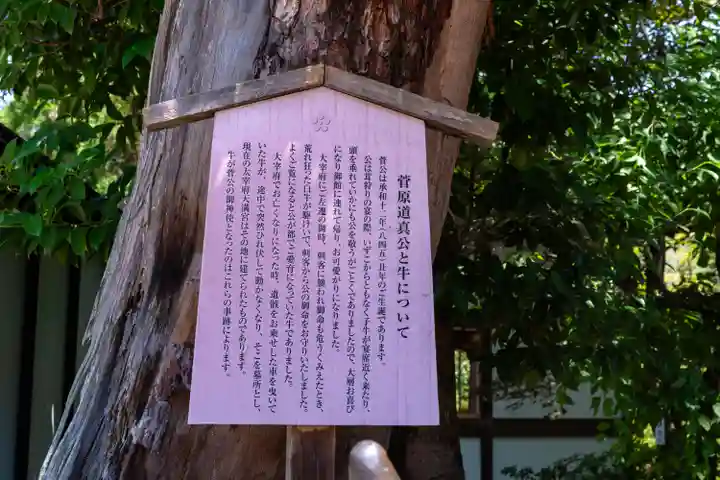 菅原道真公と牛について
菅公は承和十二年(八四五)丑年のご生誕であります。
公は茸狩りの宴の際、いずこからともなく子牛が宴席近く来たり、
頭を垂れていかにも公を敬うがごとくでありましたので、大層お喜び
になり御館に連れて帰り、お可愛がりになりました。
大宰府にご左遷の御時、刺客に襲われ御命も危うくみえたとき、
荒れ狂った白牛が駆けいで、刺客から公の御命をお守りいたしました。
よくご覧になると公が都でご愛育になっていた牛でありました。
大宰府でお亡くなりになった時、遺骸をお乗せした車を曳いて
いた牛が、途中で突然ひれ伏して動かなくなり、そこを墓所とし、
現在の太宰府天満宮はその地に建てられたものであります。
牛が菅公の御神使となったのはこれらの事跡によります。